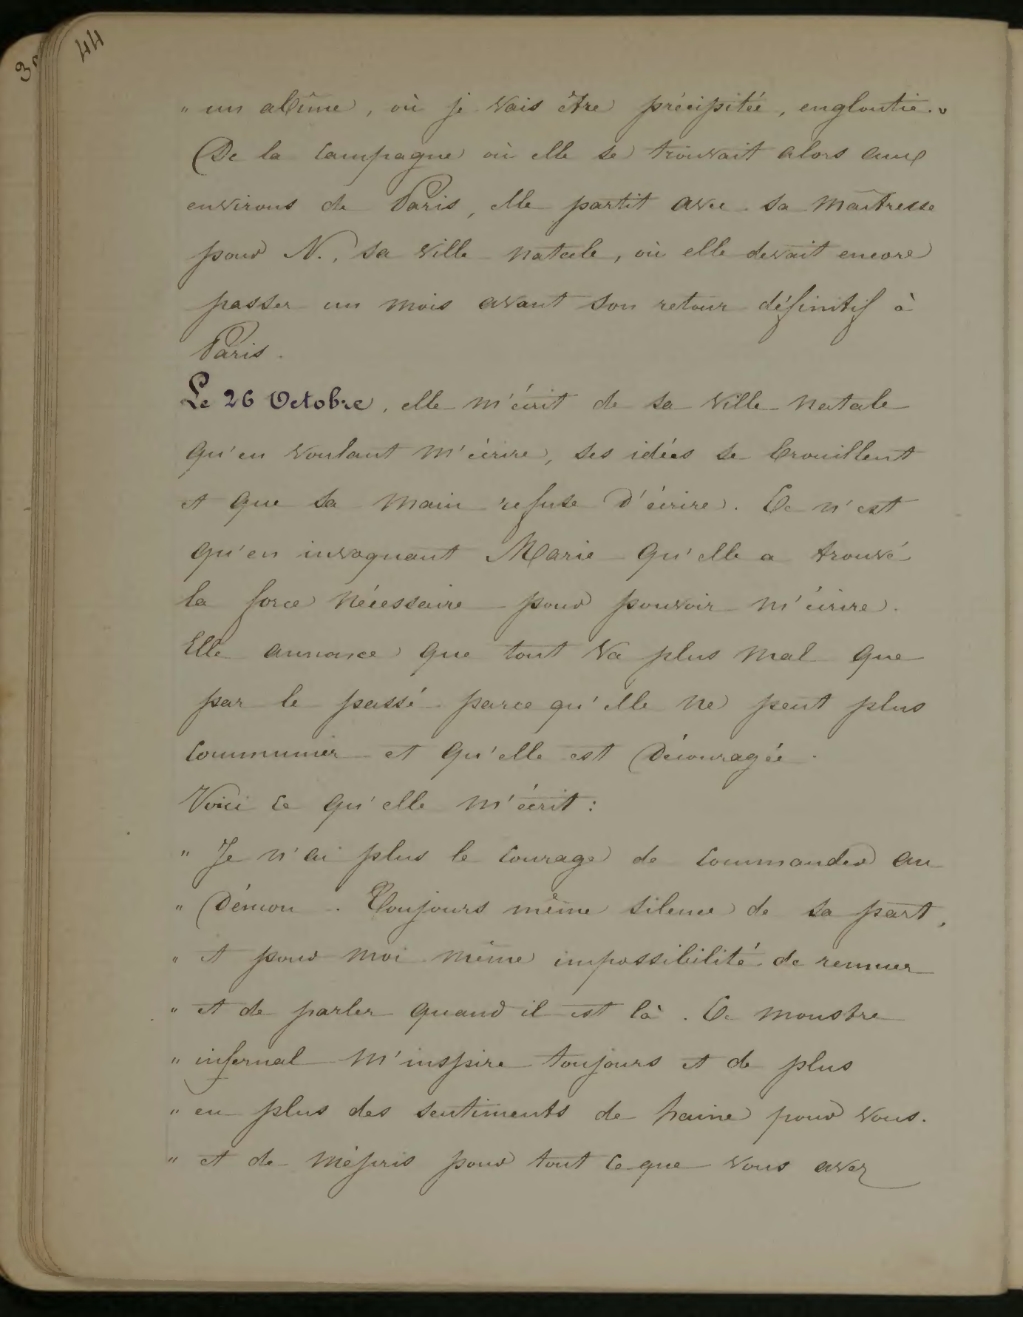 44
" un abîme, où je vais être précipitée, engloutie. "
De la Campagne où elle se trouvait alors aux
environs de Paris, elle partit avec sa maîtresse
pour N., sa ville natale, où elle devait encore
passer un mois avant son retour définitif à
Paris.
Le 26 Octobre, elle m'écrit de sa ville natale
qu'en voulant m'écrire, ses idées se brouillent
et que sa main refuse d'écrire. Ce n'est
qu'en invoquant Marie qu'elle a trouvé
la force nécessaire pour pouvoir m'écrire.
Elle annonce que tout va plus mal que
par le passé parce qu'elle ne peut plus
Communier et qu'elle est Découragée.
Voici ce qu'elle m'écrit :
" Je n'ai plus le Courage de Commander au
" Démon. Toujours même silence de sa part,
" et pour moi même impossibilité de remuer
" et de parler quand il est là. Ce monstre
" infernal m'inspire toujours et de plus
" en plus des sentiments de haine pour vous.
" et de mépris pour tout ce que vous avez